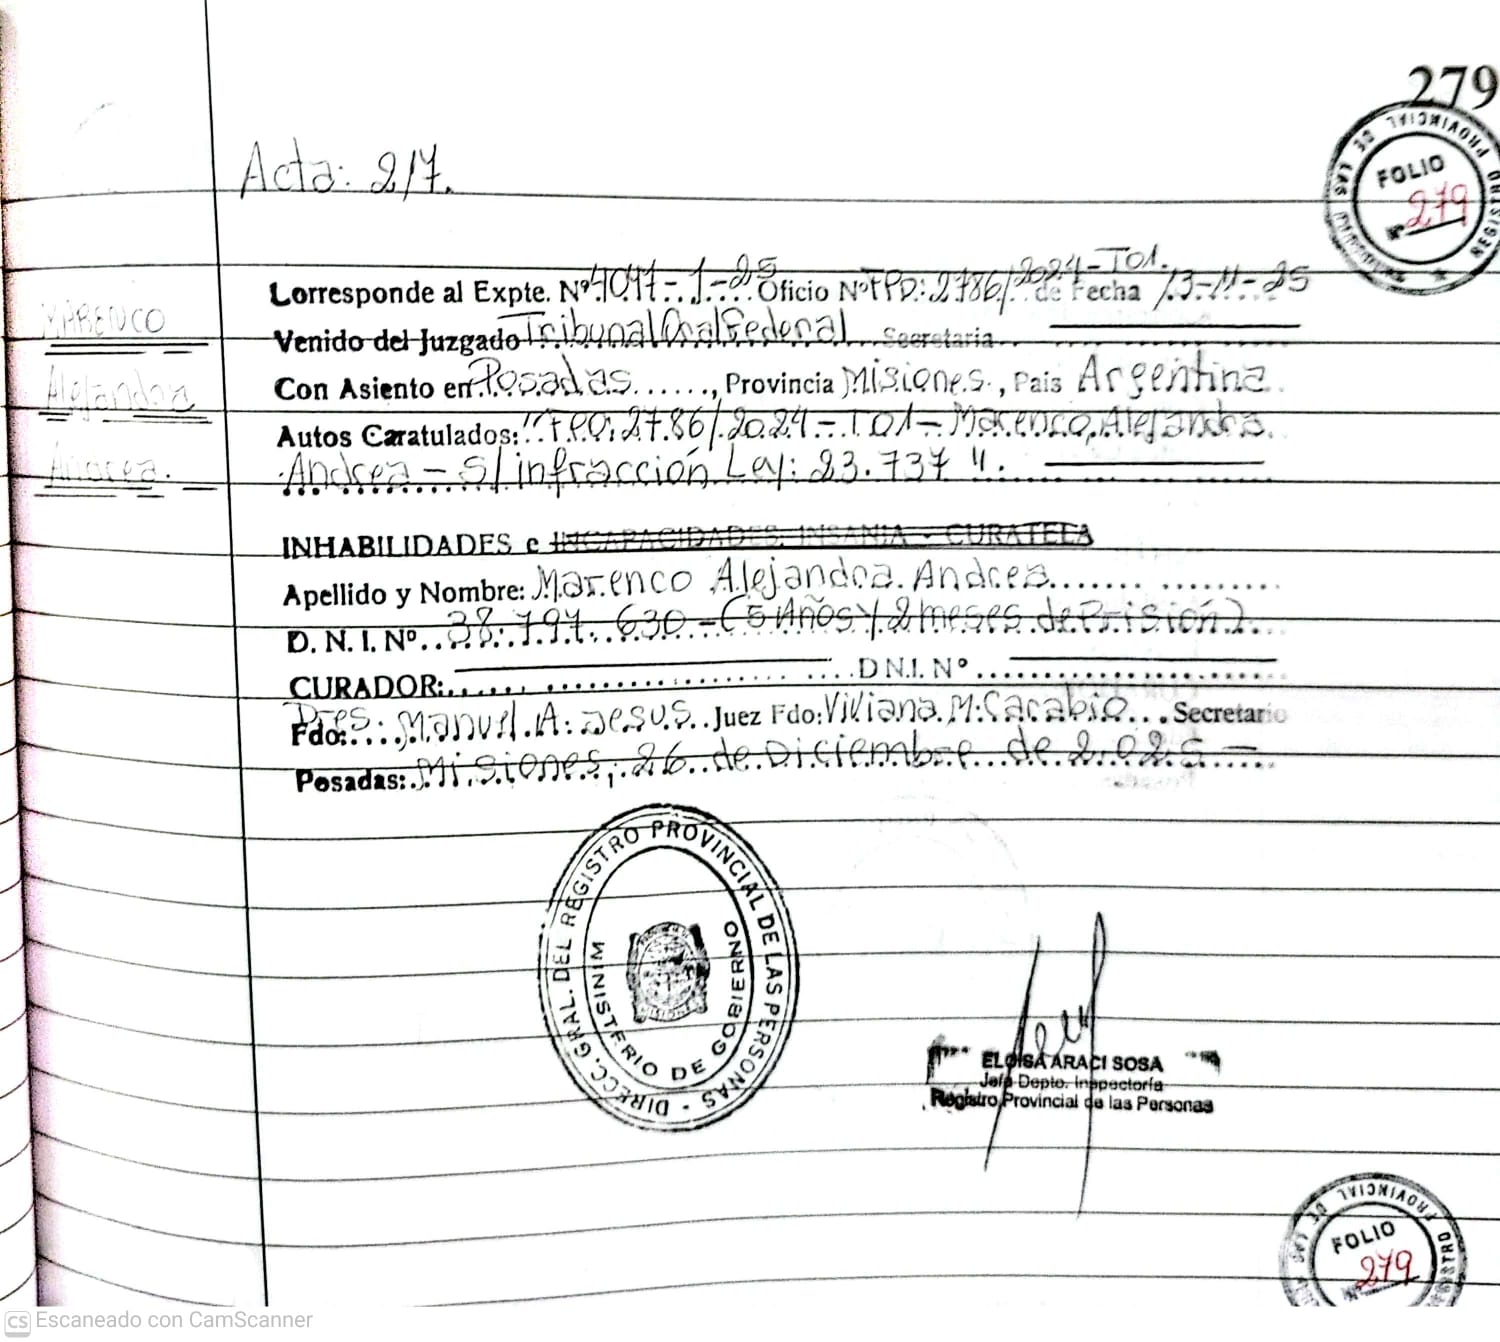 279
REGISTRO PROVINCIAL DE LAS PERSONAS
FOLIO
Nº 279
Acta: 217.
MARENCO
Alejandra
Andrea.
Corresponde al Expte. Nº 4047-1-25 Oficio Nº FPO: 2786/2024-TO1. de Fecha 13-11-25
Venido del Juzgado Tribunal Oral Federal Secretaria
Con Asiento en Posadas......, Provincia Misiones., Pais Argentina
Autos Caratulados: "FPO: 2786/2024-TO1- Marenco, Alejandra
Andrea - S/infracción Ley: 23.737".
INHABILIDADES e INCAPACIDADES, INSANIA - CURATELA
Apellido y Nombre: Marenco Alejandra Andrea
D. N. I. Nº 38.797.630 - (5 Años y 2 meses de Prisión).
CURADOR: D.N.I. Nº
Fdo: Pres. Manuel A. Jesus Juez Fdo: Viviana M. Secretario
Posadas: Misiones, 26 de Diciembre de 2.025 -
DIRECC. GRAL. DEL REGISTRO PROVINCIAL DE LAS PERSONAS -
MINISTERIO DE GOBIERNO
ELOISA ARACI SOSA
Jefa Depto. Inspectoría
Registro Provincial de las Personas
PROVINCIAL DE LAS
FOLIO
Nº 279
CS Escaneado con CamScanner